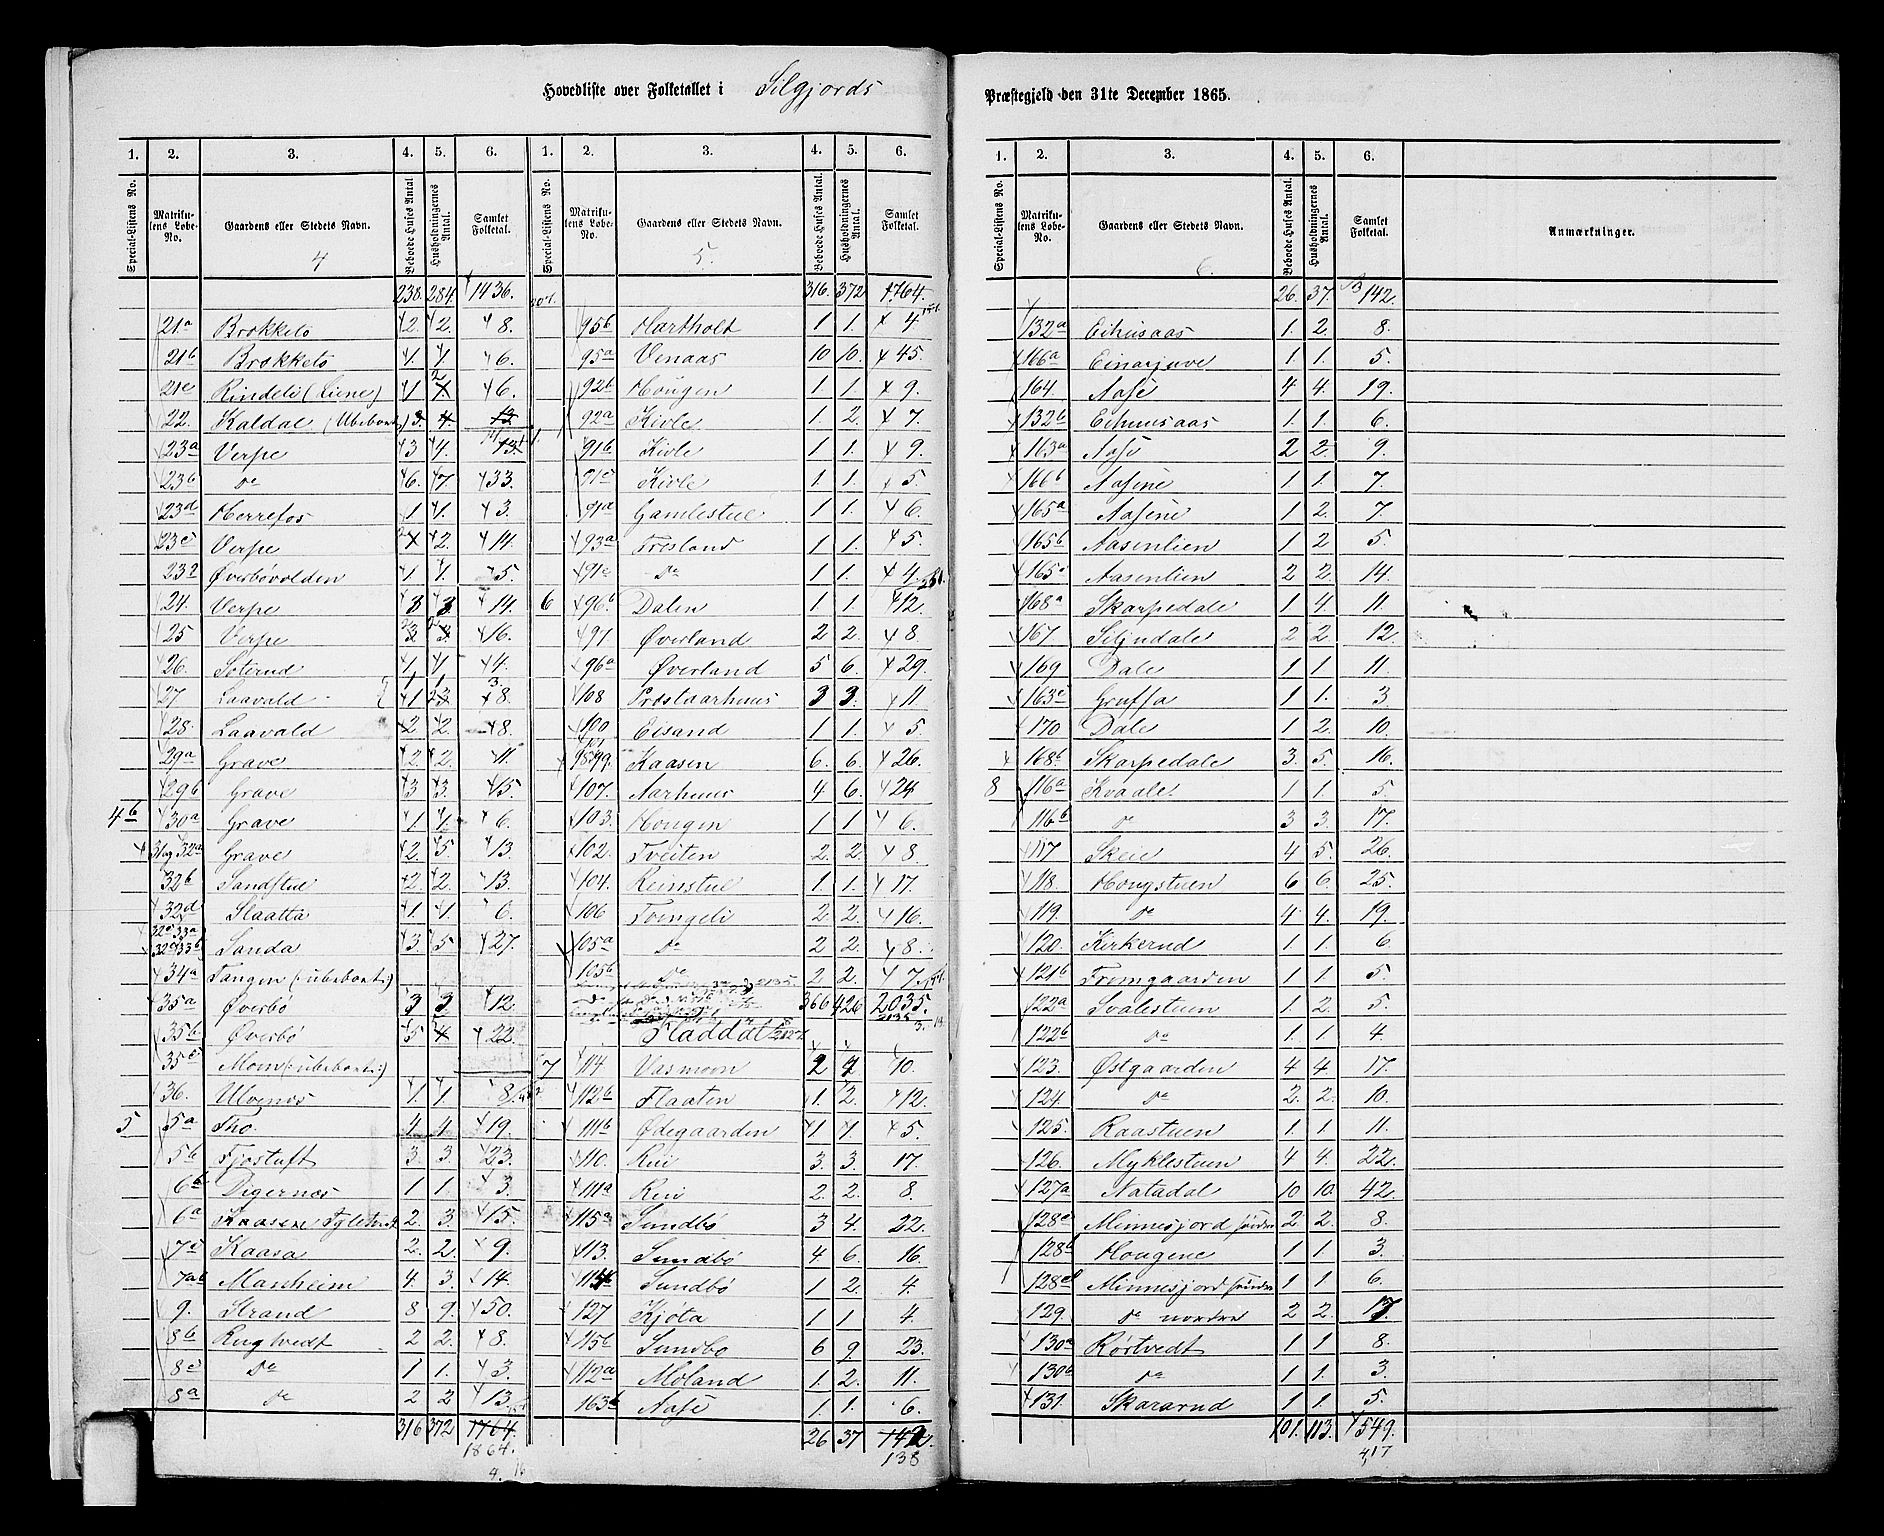 Hovedliste over Folketallet i Silgjords Præstegjeld den 31te December 1865.
1. 2. 3. 4. 5. 6. 1. 2. 3. 4. 5. 6.
Special-Listens No. Matrikulens Løbe-No. Gaardens eller Stedets Navn. Beboede Huses Antal. Husholdningernes Antal. Samlet Folketal. Special-Listens No. Matrikulens Løbe-No. Gaardens eller Stedets Navn. Beboede Huses Antal. Husholdningernes Antal. Samlet Folketal.
4 5.
238. 284. 1436. 316. 372 1764.
21a Brokkelo 2. 2. 8. 95b Hartholt 1 1. 4
21b Brokkelo 1. 1. 6. 95a Venaas 10 10. 45.
21c Rindeli (Liene) 1 2 6. 92b Hougen 1 1. 9.
22. Kaldal (Ubeboet) 3. 4. 13. 92a Kivle 1. 2. 7.
23a Verpe 3 4. 13. 91b Kivle 1 1. 9
23b do 6. 7. 33. 91c Kivle 1. 1. 5
23d Herrefos 1 1. 3. 91a Gamlestul 1 1. 6
23c Verpe 2 2. 14. 93a Tresland 1 1. 5.
23 Øverbøvolden 1 1. 5. 91e do 1 1. 4
24. Verpe 3 3. 14. 6 96b Dalen 1 1. 12.
25 Verpe 3 3. 16. 97 Øverland 2 2. 8
26. Soterud 1. 1 4. 96a Øverland 5 6. 29.
27 Laavald 1 8. 108 Prestaarhuus 3 3. 11
28. Laavald 2 2. 8. 100 Eisand 1 1. 5
29a Grave 2. 2. 11. 99. Kaasen 6. 6. 26.
29b Grave 3 3. 15. 107. Aarhuus 4 6. 24
4b 30a Grave 1. 1. 6. 103. Hougen 1 1 6.
31 og 32a Grave 2. 5. 13. 102. Tveiten 2. 2. 8
32b Sandstul 2. 2. 13. 104. Reinstul 1. 1. 17.
32d Slaatta 1. 1. 6. 106 Tvingeli 2. 2. 16.
Sanda 3 5. 27. 105a do 2 2. 8.
34a Tangen (: ubeboet:) 105b do 2 2. 7
35a Øverbø 3 3. 12. 366 426 2035.
35b Øverbø 5 4 22. Fladdal
35c Moen (: ubeboet:) 7 114 Vasmoen 2 2. 10.
36. Ulvenes 1. 1. 8. 112b Flaaten 1. 2. 12.
5 5a Tho 4 4. 19. 111b Ødegaarden 1 1. 5.
5b Fjostuft 3. 3. 23. 110. Rui 3. 3. 17.
6b Digernes 1 1. 3. 111a Rui 2. 2. 8.
6a Kaasen 2. 3. 15. 115a Sundbø 3 4. 22.
7c Kaasa 2. 2. 9. 113. Sundbø 4 6. 16
7ab Manheim 4. 3. 14. Sundbø 1 2. 4.
9. Strand 8 9. 50. 127 Kjøta 1 1 4.
8b Rugtvedt 2 2. 8. 115c Sundbø 6 9. 23.
8c do 1 1. 3. 112a Moland 1. 2. 11.
8a do 2 2 13. 163b Aase 1. 1. 6.
316 372 1764. 26 37 142.
1864. 138
1. 2. 3. 4. 5. 6.
Special-Listens No. Matrikulens Løbe-No. Gaardens eller Stedets Navn. Beboede Huses Antal. Husholdningernes Antal. Samlet Folketal. Anmærkninger.
6.
26. 37. 142.
132a Eihusaas 1. 2. 8.
166a Einarjuve 1. 1. 5.
164. Aase 4 4. 19.
132b Eihuusaas 1. 1. 6.
163a Aase 2 2. 9.
166b Aasene 1 1. 7.
165a Aasene 1 2. 7.
165b Aasenlien 1. 2 5.
165c Aasenlien 2 2. 14.
168a Skarpedale 1 4. 11.
167. Siljudale 2 2. 12.
169 Dale 1 1. 11.
163c Gruffa 1 1. 3
170 Dale 1 2. 10.
168b Skarpedale 3. 5. 16.
8 116a Kvaale 1 1. 5.
116b do 3 3. 17.
117 Skeie 4 5. 26.
118. Hougstuen 6 6. 25.
119. do 4 4. 19.
120. Kirkerud 1 1. 6
121b Fromgaarden 1 1. 5
122a Svalestuen 1. 2. 5
122b do 1 1. 4
123. Østgaarden 4 4. 17.
124 do 2. 2. 10.
125. Raastuen 1 1. 11.
126. Myklestuen 4 4. 22.
127a Natadal 10 10. 42.
128c Minnesjord søndre 2 2. 8.
128b Hougene 1 1. 3.
128d Minnesjord søndre 1 1. 6.
129. do nordre 2 2. 17.
130a Rørtvedt 1 1 8.
130b do 1 1. 3.
131. Skararud 1 1. 5.
101. 113. 549.
417